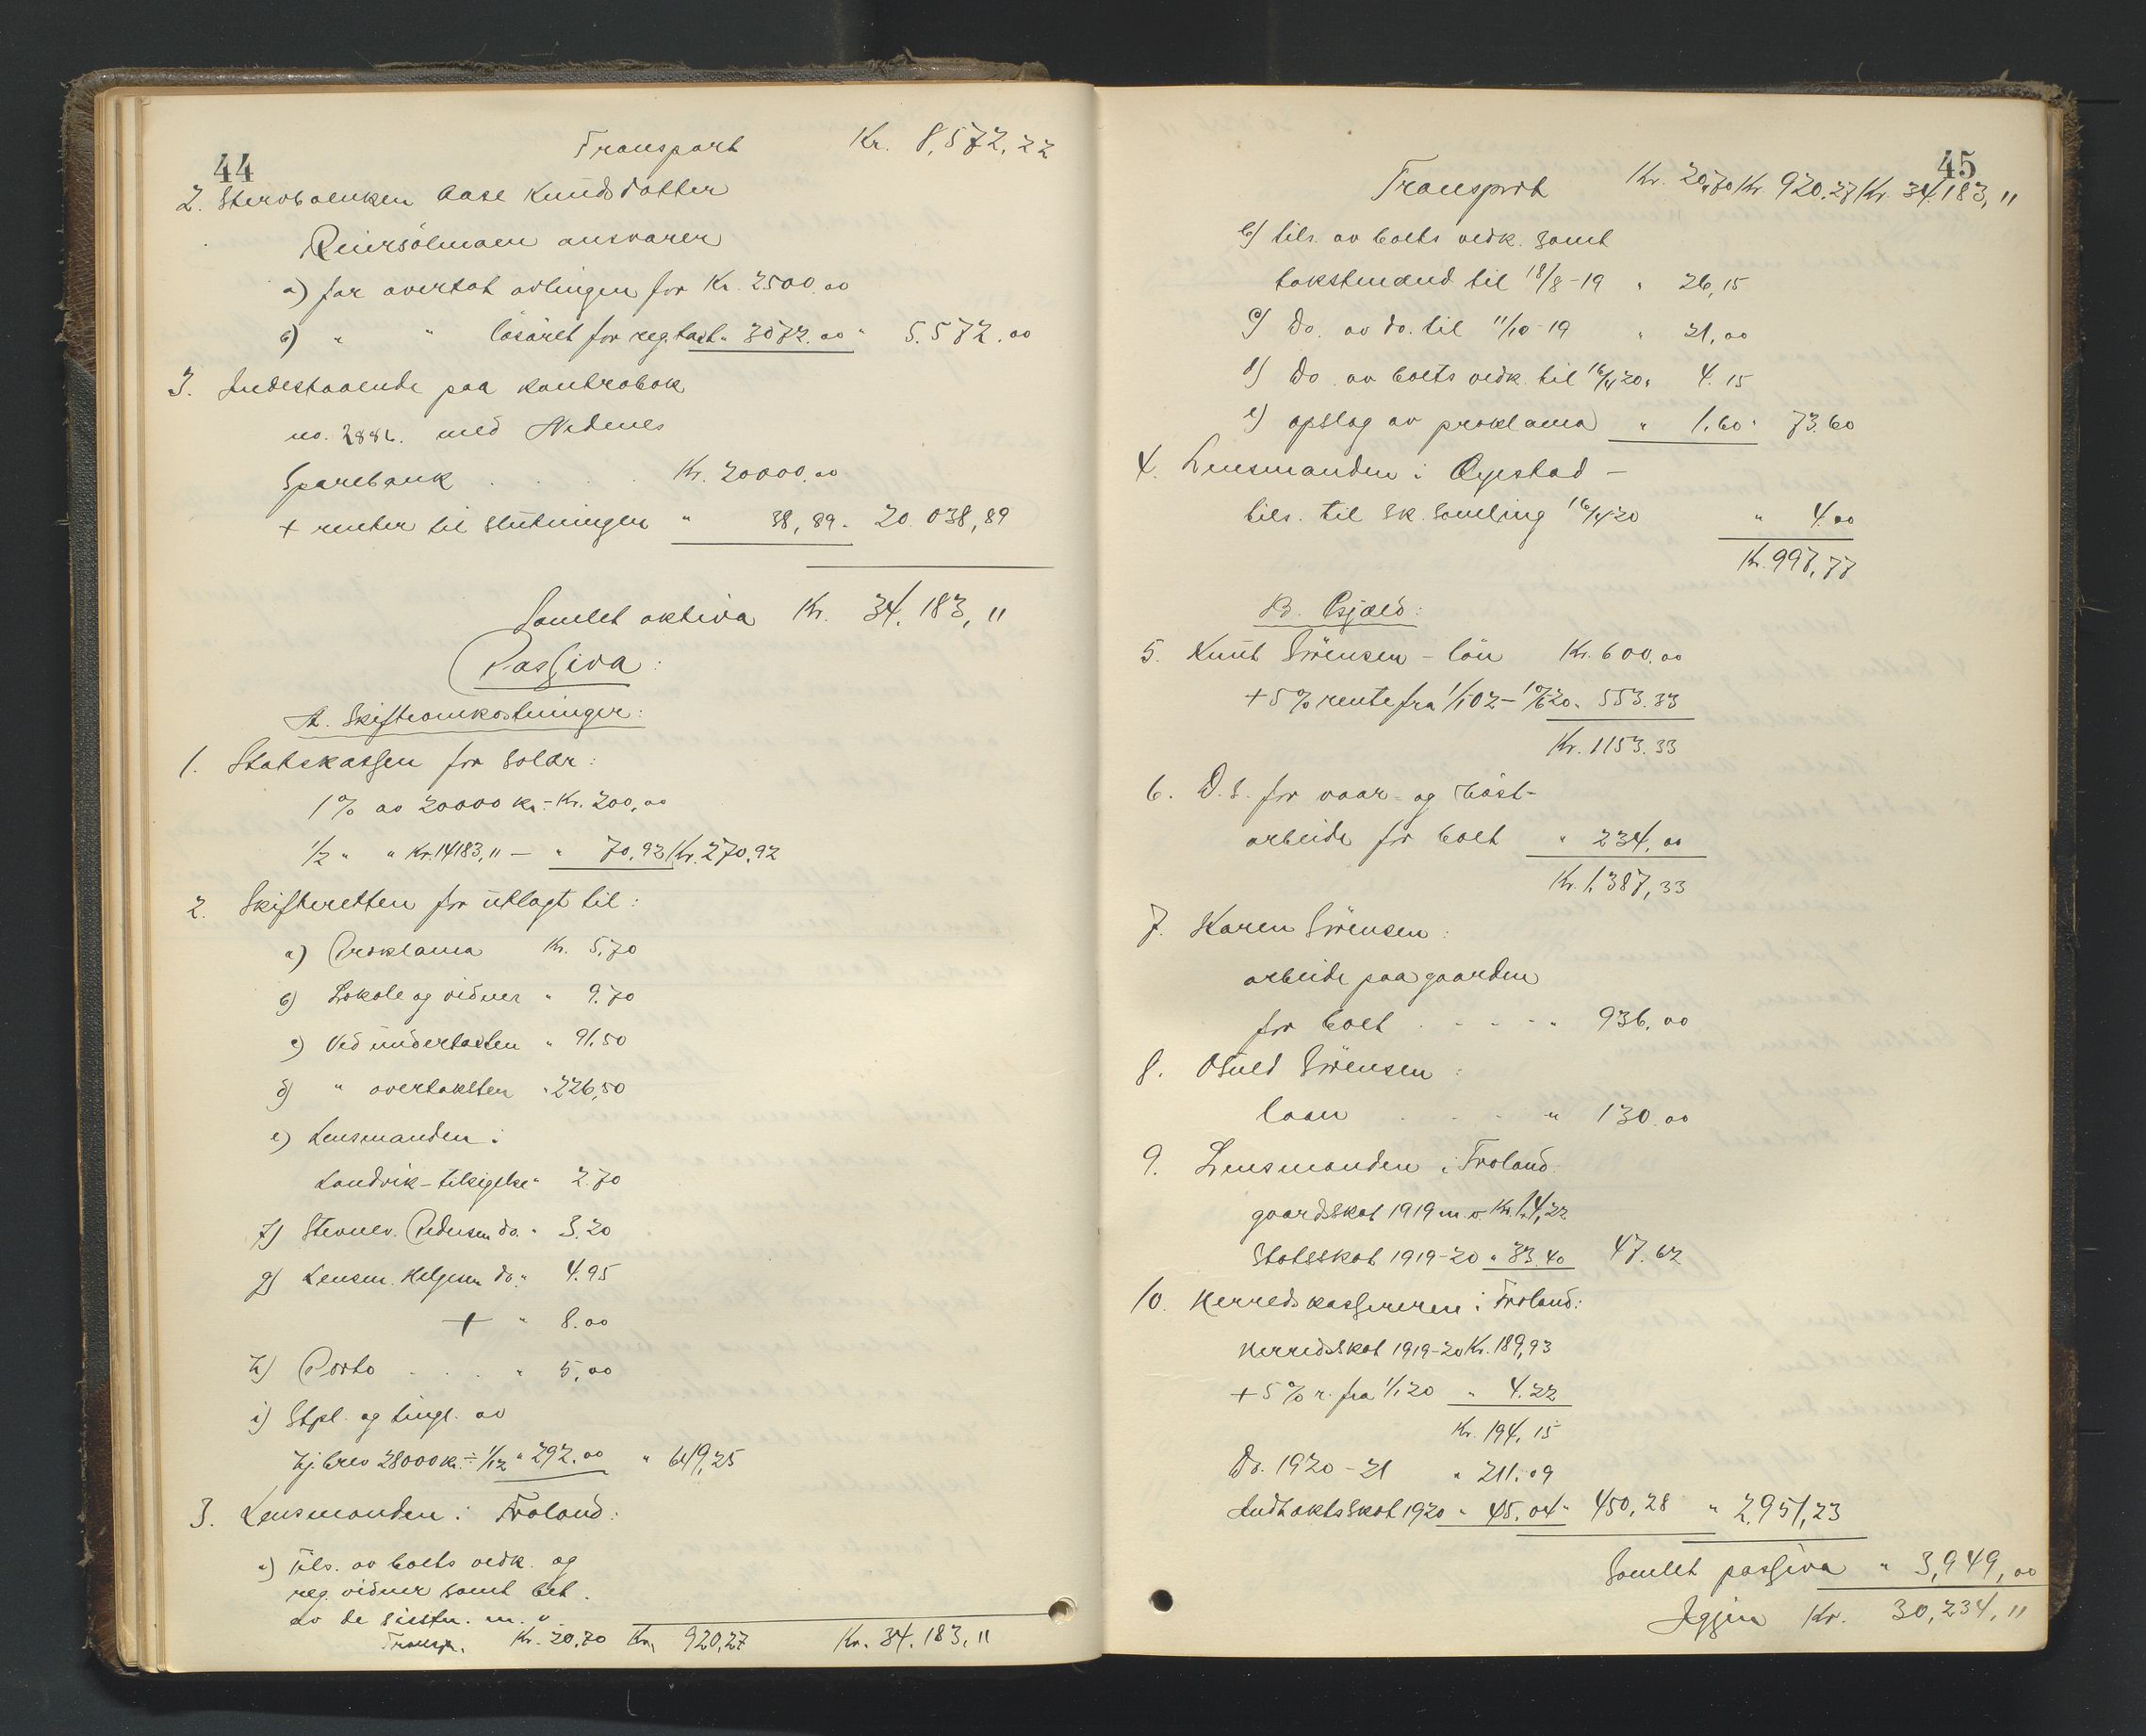 44
Transport Kr. 8,572,22
2. Stervboenken Aase Knudsdatter
Reiersölmoen ansvarer
a) for overtat avlingen for Kr. 2500.00
b) " " lösöret for reg.takst " 3072.00 " 5.572.00
3. Indestaaende paa kontrabok
no. 2886. med Nedenes
Sparebank . . . . Kr. 20000.00
+ renter til slutningen " 38,89 " 20.038,89
Samlet aktiva Kr. 34.183,11
Passiva:
A. Skifteomkostninger:
1. Statskassen for solær:
1% av 20000 kr – Kr. 200,00
1/2 " " Kr. 14183,11 – " 70,92 Kr. 270,92
2. Skifteretten for utlagt til:
a) Proklama Kr. 5,70
b) Lokale og vidner " 9.70
c) Ved undertaksten " 91.50
d) " overtaksten " 226,50
e) Lensmanden i
Landvik – tilsigelse " 2.70
f) Stevnev. Pedersen do. " 3.20
g) Lensm. Helgesen do. " 4.95
+ " 8.00
h) Porto . . . . " 5,00
i) Stpl. og tingl. av
hj.brev 28000 kr. ÷ 1/12 " 292.00 " 649,25
3. Lensmanden i Froland:
a) Tils. av boets vedk. og
reg. vidner samt bet.
av de sistn. m. v.
Transp. Kr. 20,70 Kr. 920,27 Kr. 34.183,11
45
Transport Kr. 20,70 Kr. 920.27 Kr. 34.183,11
b) tils. av boets vedk. samt
takstmænd til 18/8-19 " 26,15
c) Do. av do. til 11/10-19 " 21,00
d) Do. av boets vedk. til 16/4 20 " 4.15
e) opslag av proklama " 1.60 " 73.60
4. Lensmanden i Øyestad –
tils. til sk.samling 16/4 20 " 4.00
Kr. 997,77
B. Gjæld:
5. Knut Sörensen – lön Kr. 600.00
+ 5% rente fra 1/1 02 – 10/6 20 " 553.33
Kr. 1153.33
6. D. S. for vaar- og höst-
arbeide for boet " 234.00
Kr. 1.387,33
7. Karen Sörensen:
arbeide paa gaarden
for boet . . . . " 936.00
8. Osuld Sörensen:
laan . . . . " 130.00
9. Lensmanden i Froland:
gaardsskat 1919 m.v. Kr. 14,22
Statsskat 1919-20 " 33.40 47.62
10. Herredskassereren i Froland:
Herredsskat 1919-20 Kr. 189,93
+ 5% r. fra 1/1 20 " 4.22
Kr. 194,15
Do. 1920-21 " 211.09
Indtæktsskat 1920 " 45.04 " 450,28 " 2.951,23
Samlet passiva " 3,949,00
Igjen Kr. 30,234,11